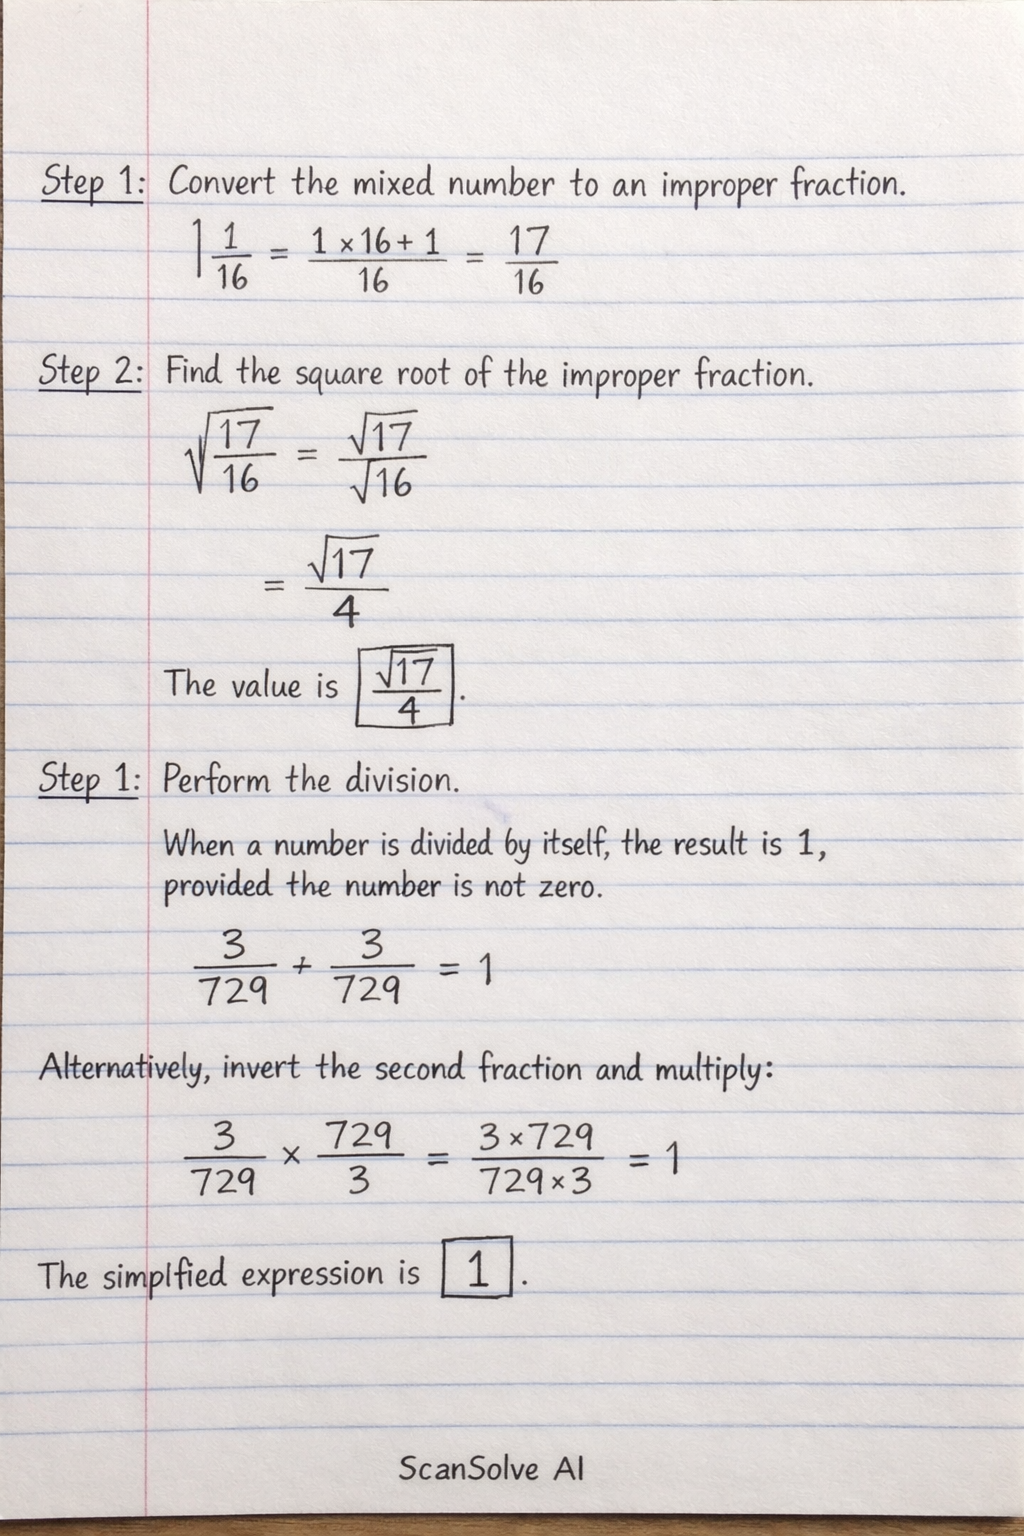 Step 1: Convert the mixed number to an improper fraction.
1 1/16 = (1 × 16 + 1)/16 = 17/16
Step 2: Find the square root of the improper fraction.
√(17/16) = √17/√16
= √17/4
The value is √17/4.
Step 1: Perform the division.
When a number is divided by itself, the result is 1,
provided the number is not zero.
3/729 + 3/729 = 1
Alternatively, invert the second fraction and multiply:
3/729 × 729/3 = (3 × 729)/(729 × 3) = 1
The simplfied expression is 1.
ScanSolve AI